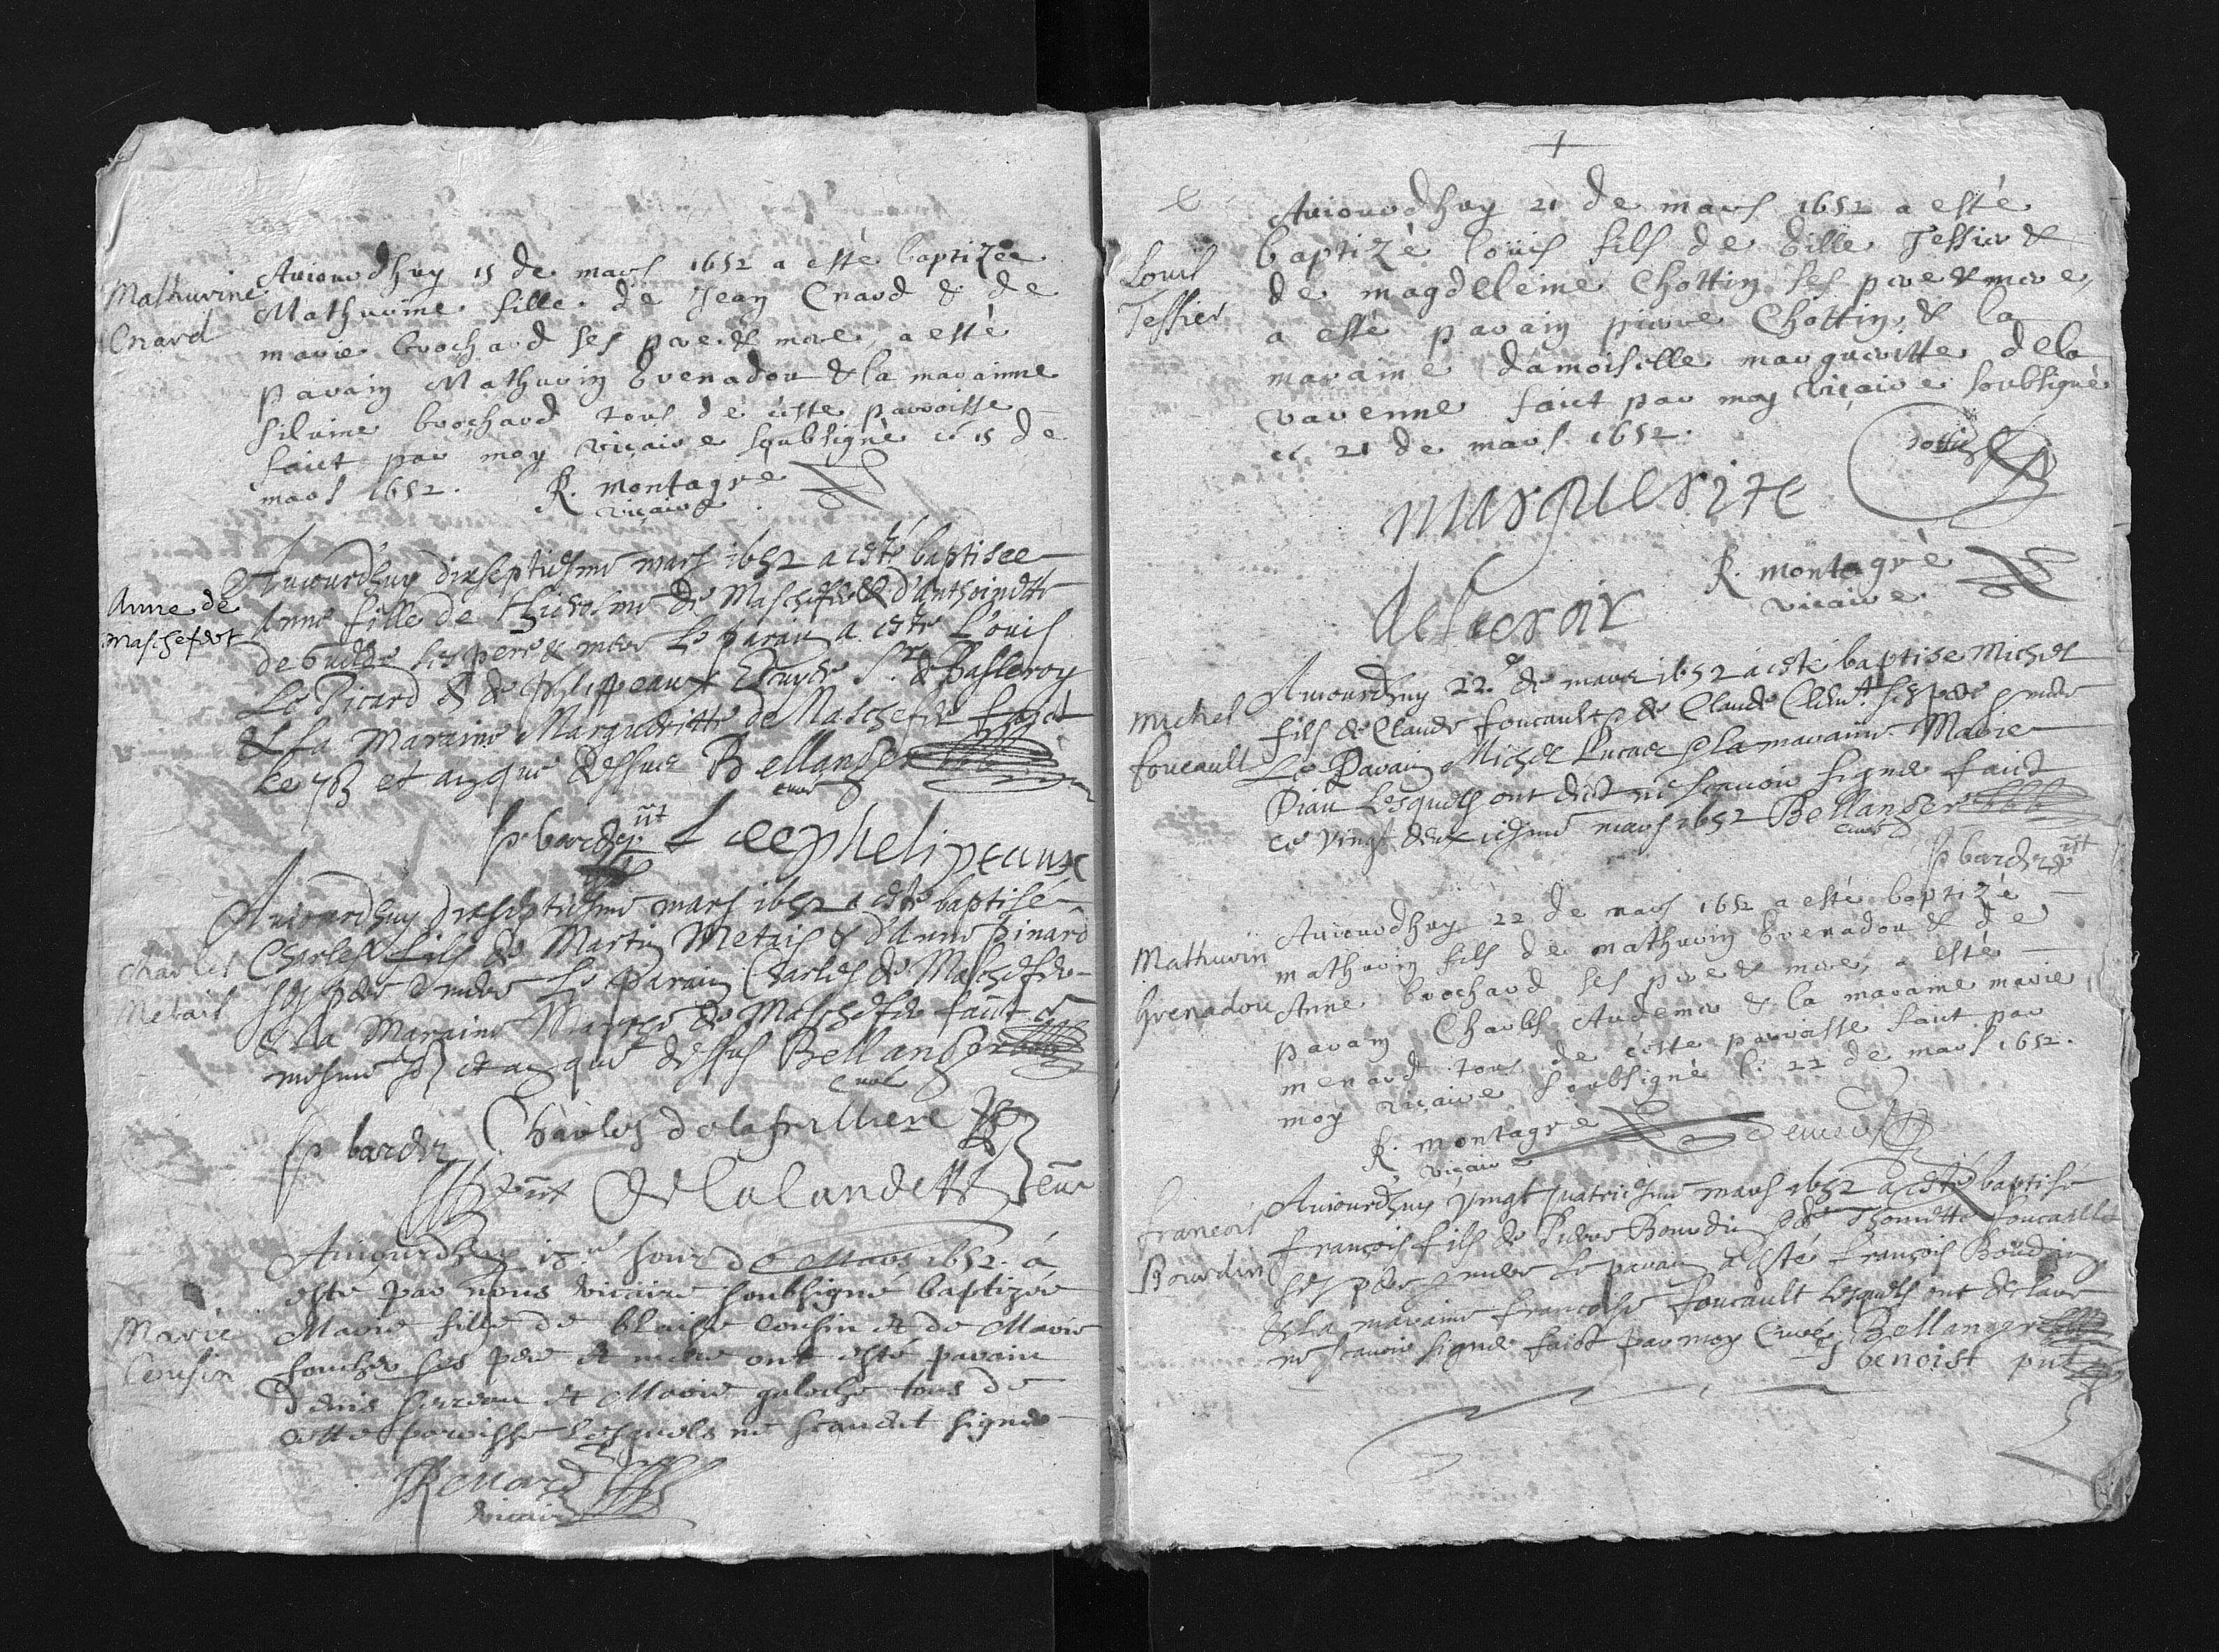 Mathurine
Enard
Auiourdhuy 15 de mars 1652 a esté baptizée
Mathurine fille de Jean Enard & de
marie brochard ses pere & mere, a esté
parain Mathurin Grenadou & la marainne
silvine brochard tous de ceste parroisse
faict par moy vicaire soubsigné ce 15 de
mars 1652. R. montagre
vicaire
Anne de
Maschefert
Auiourdhuy dixseptiesme mars 1652 a esté baptisée
Anne fille de de Maschefer & d'anthoinette
de ses pere & mere Le parain a esté Louis
Le Picard & de Philippeaux Escuyer Sr. de
& la Maraine Margueritte de Maschefer faict
le jour et an que dessus Bellanger
curé
P bardin L phelipeaux
Charles
Metais
Auiourdhuy dixseptiesme mars 1652 a esté baptisé
Charles fils de Martin Metais & d'Anne Pinard
ses pere & mere Le Parain Charles de Maschefer
& La Maraine de Maschefer faict ce
mesme jour et an que dessus Bellanger
curé
P bardin Charles de la
De la lande
Marie
Cousin
Auiourdhuy 18e jour de Mars 1652. a
esté par nous vicaire soubsigné baptizée
Marie fille de blaise Cousin et de Marie
foucher ses pere et mere ont esté parain
denis et Marie galoche tous de
cette paroisse lesquels ne scavent signer
Renard
vicaire
Louis
Tessier
Auiourdhuy 21 de mars 1652 a esté
baptizé louis fils de Gille Tessier &
de magdeleine Chottin ses pere & mere,
a esté parain pierre Chottin, & la
maraine damoiselle margueritte dela
varenne faict par moy vicaire soubsigné
ce 21 de mars 1652.
marguerite
R. montagré
vicaire
michel
foucault
Auiourdhuy 22e de mars 1652 a esté baptisé Michel
fils de Claude foucault & de Claude ses pere & mere
Le Parain Michel Lucas & la maraine Marie
Piau Lesquels ont dict ne scavoir signer faict
ce vingt deuxiesme mars 1652 Bellanger
curé
P bardin
Mathurin
Grenadou
Auiourdhuy 22 de mars 1652 a esté baptizé
mathurin fils de mathurin Grenadou & de
Anne brochard ses pere & mere, a esté
parain Charles Audemer & la maraine marie
menard tous de ceste parroisse faict par
moy vicaire soubsigné le 22 de mars 1652.
R. montagré
vicaire
francois
Bourdin
Auiourdhuy vingt quatriesme mars 1652 a esté baptisé
François fils de Pierre Bourdin & de Thomette foucault
ses pere & mere Le parain a esté François Bourdin
& La maraine françoise foucault Lesquels ont declare
ne scavoir signer faict par moy Curé Bellanger
benoist pnt